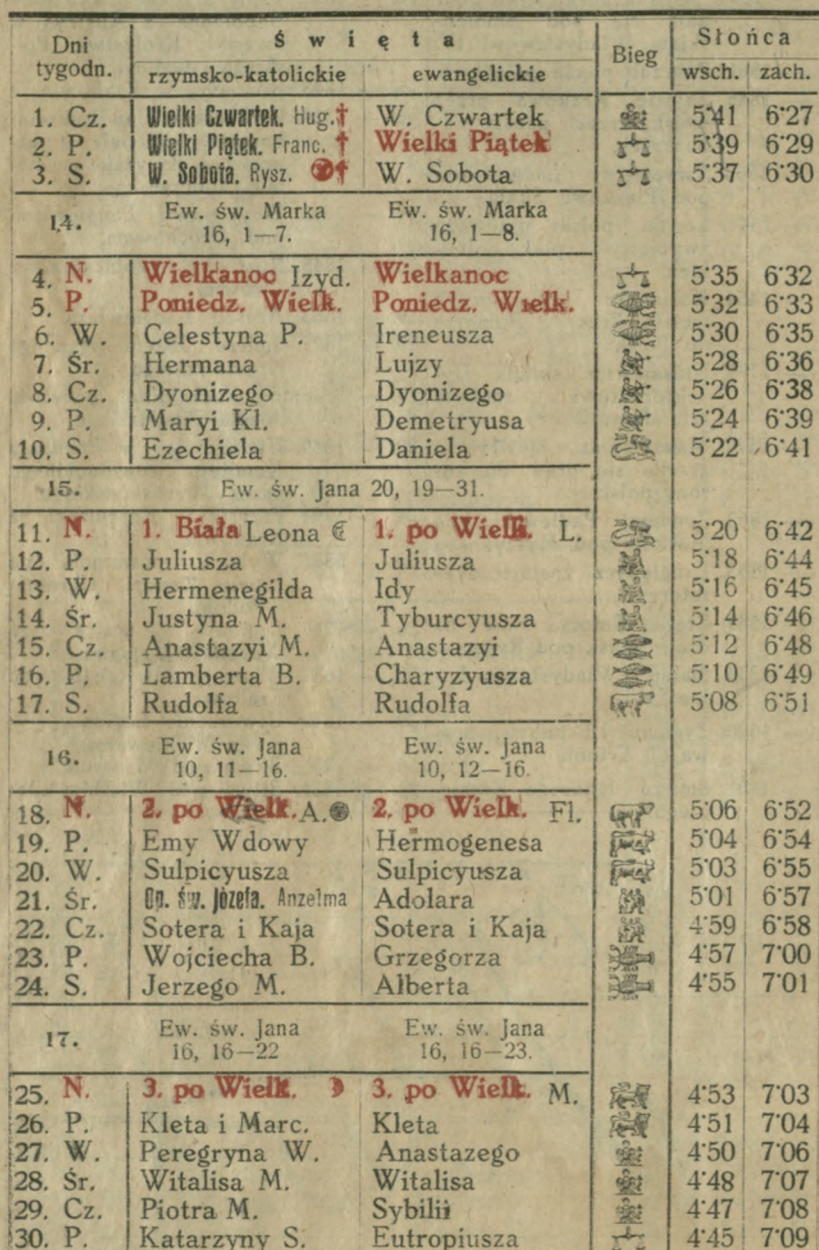 Dni tygodn. Święta Bieg Słońca
rzymsko-katolickie ewangelickie wsch. zach.
1. Cz. Wielki Czwartek. Hug.† W. Czwartek 5·41 6·27
2. P. Wielki Piątek. Franc. † Wielki Piątek 5·39 6·29
3. S. W. Sobota. Rysz. † W. Sobota 5·37 6·30
14. Ew. św. Marka Ew. św. Marka
16, 1—7. 16, 1—8.
4. N. Wielkanoc Izyd. Wielkanoc 5·35 6·32
5. P. Poniedz. Wielk. Poniedz. Wielk. 5·32 6·33
6. W. Celestyna P. Ireneusza 5·30 6·35
7. Śr. Hermana Lujzy 5·28 6·36
8. Cz. Dyonizego Dyonizego 5·26 6·38
9. P. Maryi Kl. Demetryusa 5·24 6·39
10. S. Ezechiela Daniela 5·22 6·41
15. Ew. św. Jana 20, 19—31.
11. N. 1. Biała Leona ☾ 1. po Wielk. L. 5·20 6·42
12. P. Juliusza Juliusza 5·18 6·44
13. W. Hermenegilda Idy 5·16 6·45
14. Śr. Justyna M. Tyburcyusza 5·14 6·46
15. Cz. Anastazyi M. Anastazyi 5·12 6·48
16. P. Lamberta B. Charyzyusza 5·10 6·49
17. S. Rudolfa Rudolfa 5·08 6·51
16. Ew. św. Jana Ew. św. Jana
10, 11—16. 10, 12—16.
18. N. 2. po Wielk. A. 2. po Wielk. Fl. 5·06 6·52
19. P. Emy Wdowy Hermogenesa 5·04 6·54
20. W. Sulpicyusza Sulpicyusza 5·03 6·55
21. Śr. Op. św. Józefa. Anzelma Adolara 5·01 6·57
22. Cz. Sotera i Kaja Sotera i Kaja 4·59 6·58
23. P. Wojciecha B. Grzegorza 4·57 7·00
24. S. Jerzego M. Alberta 4·55 7·01
17. Ew. św. Jana Ew. św. Jana
16, 16—22 16, 16—23.
25. N. 3. po Wielk. ☽ 3. po Wielk. M. 4·53 7·03
26. P. Kleta i Marc. Kleta 4·51 7·04
27. W. Peregryna W. Anastazego 4·50 7·06
28. Śr. Witalisa M. Witalisa 4·48 7·07
29. Cz. Piotra M. Sybilii 4·47 7·08
30. P. Katarzyny S. Eutropiusza 4·45 7·09